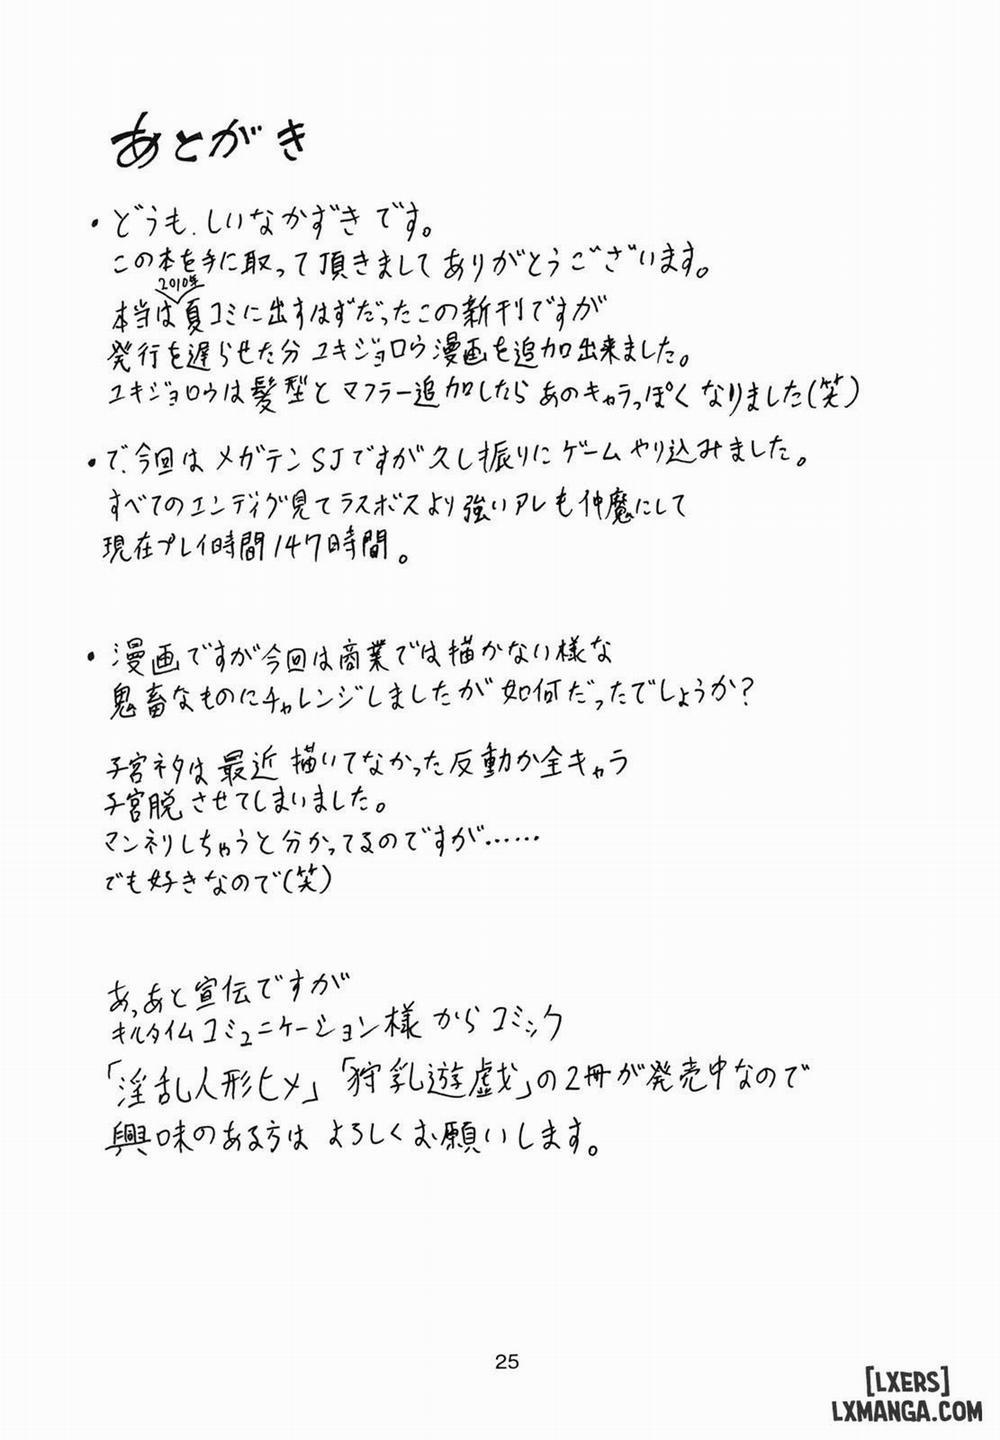 あとがき
・どうも、しいなかずきです。
この本を手に取って頂きましてありがとうございます。
2010年
本当は夏コミに出すはずだったこの新刊ですが
発行を遅らせた分ユキジョロウ漫画を追加出来ました。
ユキジョロウは髪型とマフラー追加したらあのキャラっぽくなりました(笑)
・で、今回はメガテンSJですが久し振りにゲームやり込みました。
すべてのエンディグ見てラスボスより強いアレも仲魔にして
現在プレイ時間147時間。
・漫画ですが今回は商業では描かない様な
鬼畜なものにチャレンジしましたが如何だったでしょうか?
子宮ネタは最近描いてなかった反動か全キャラ
子宮脱させてしまいました。
マンネリしちゃうと分かってるのですが……
でも好きなので(笑)
あ、あと宣伝ですが
キルタイムコミュニケーション様からコミック
「淫乱人形ヒメ」「狩乳遊戯」の2冊が発売中なので
興味のある方はよろしくお願いします。
25
[LXERS]
LXMANGA.COM